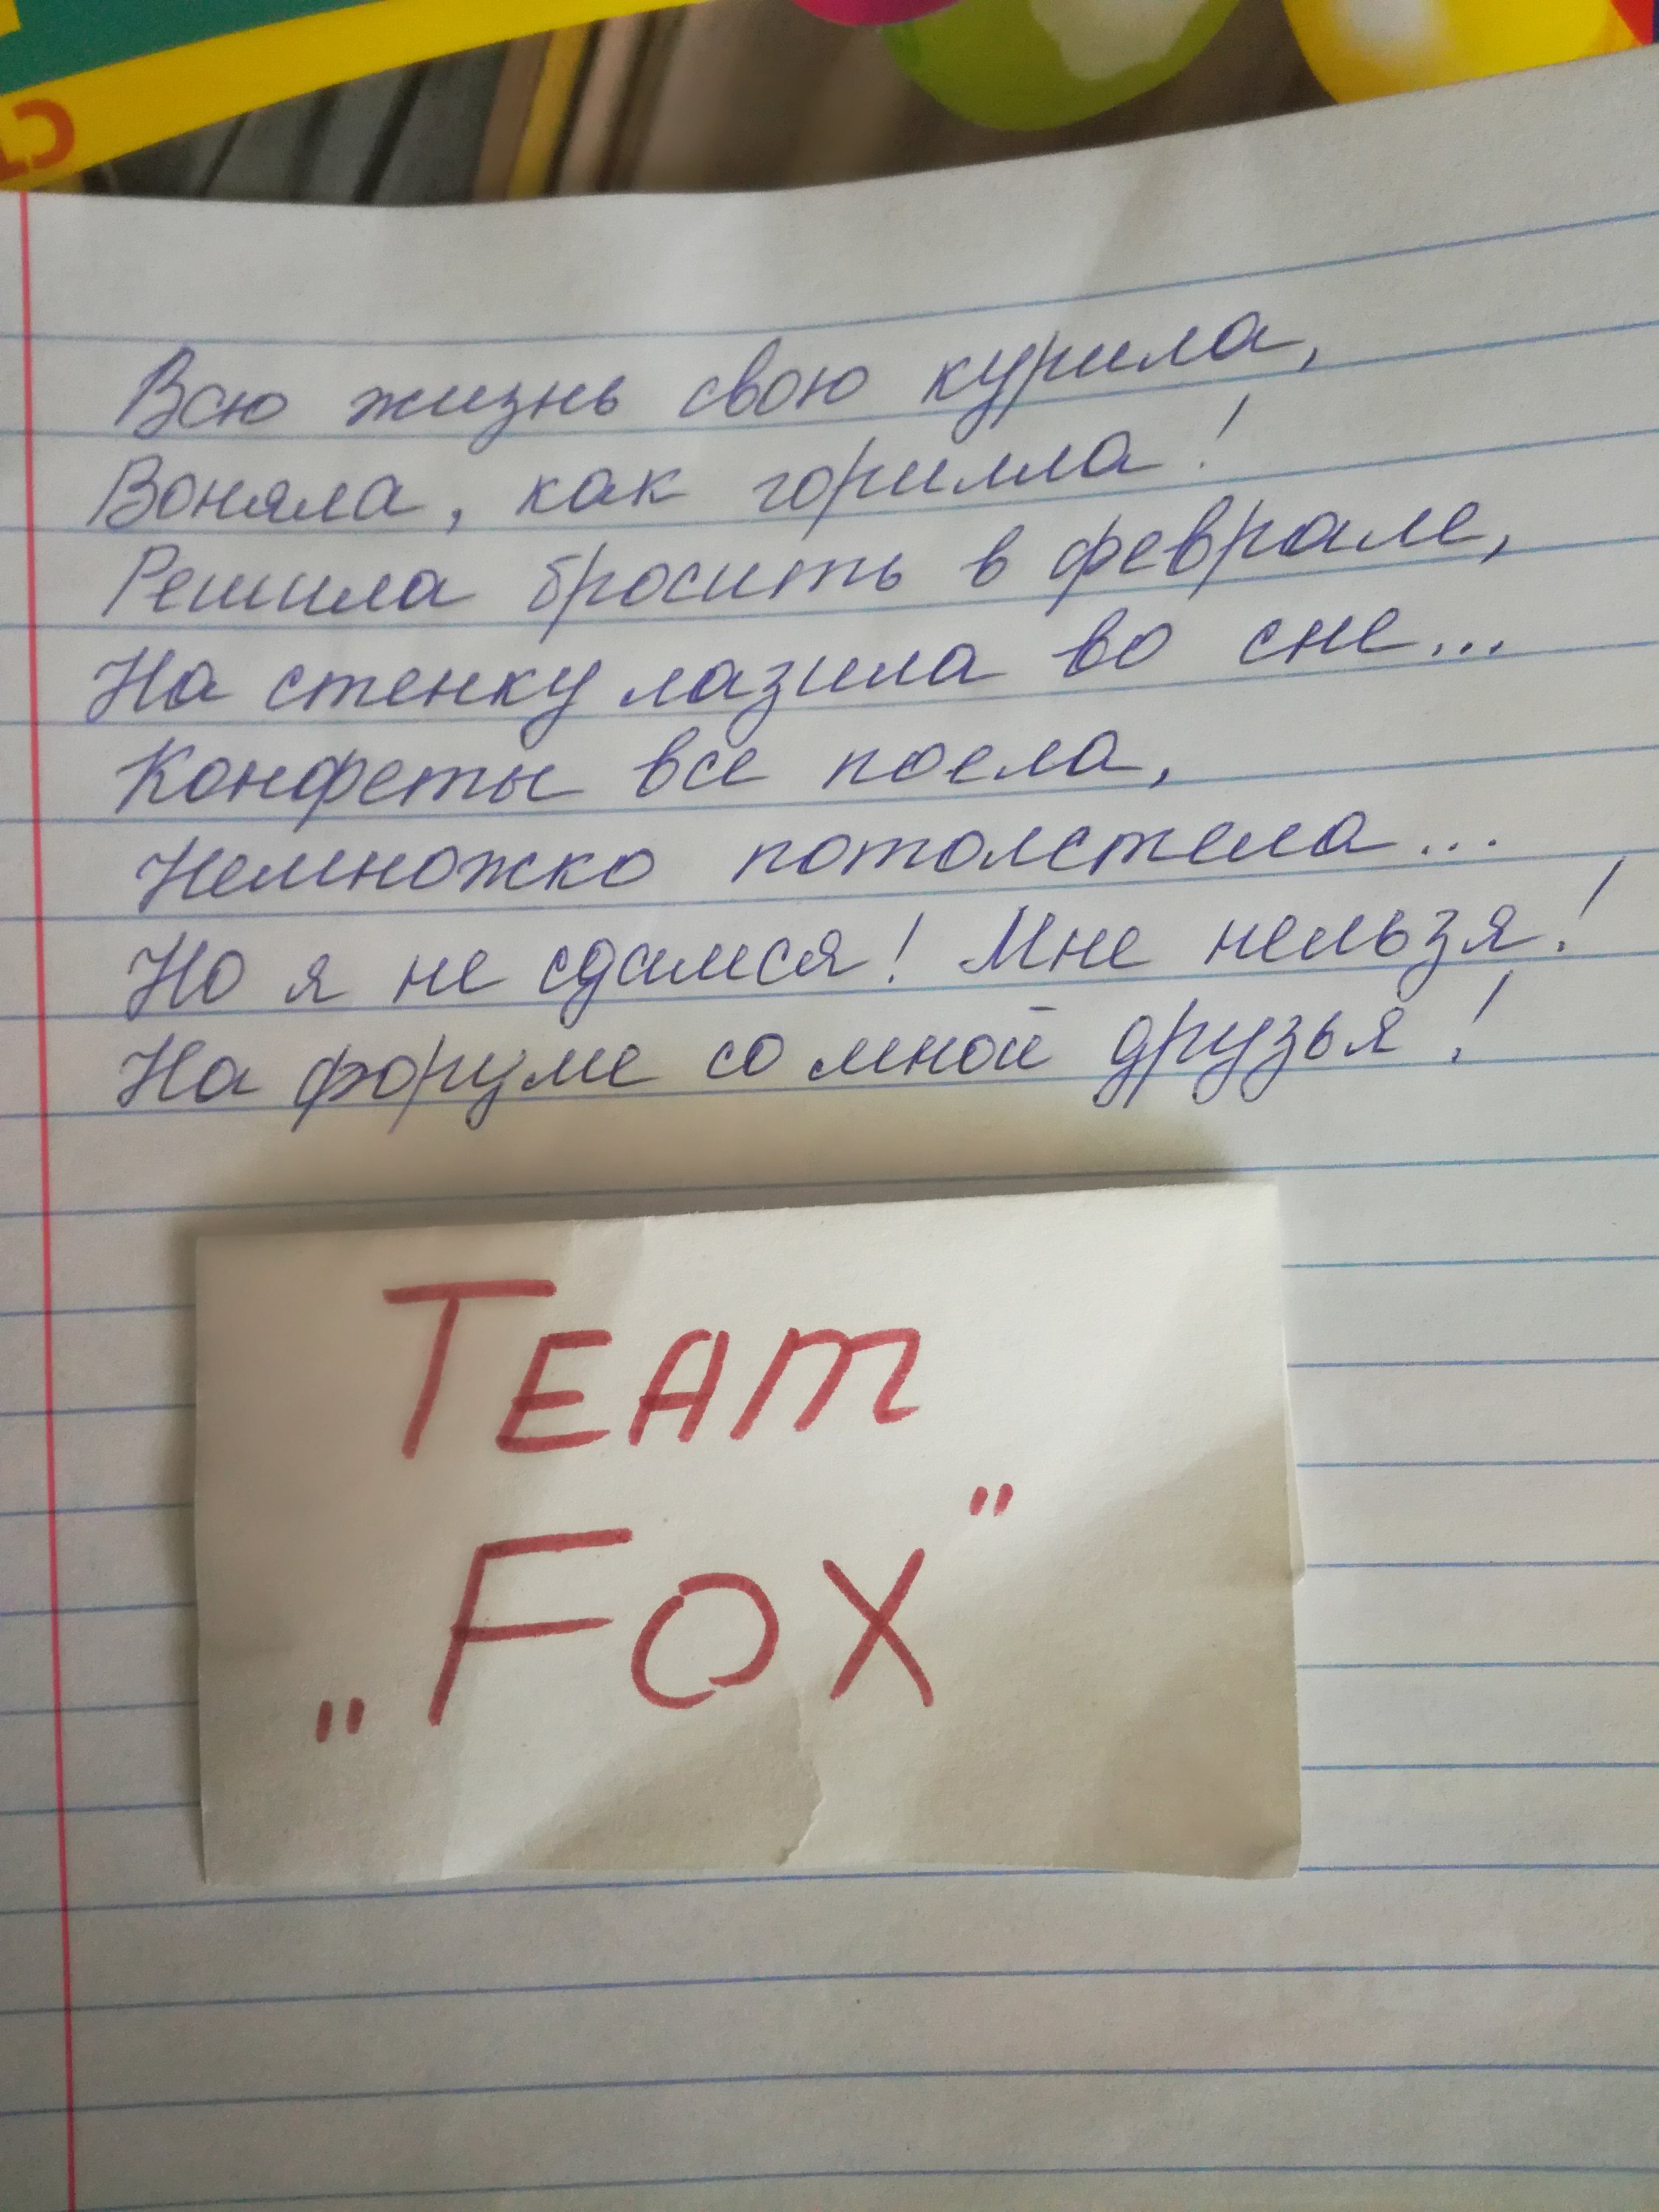 ст
Всю жизнь свою курила,
Воняла, как горилла!
Решила бросить в феврале,
На стенку лазила во сне...
Конфеты все поела,
Немножко потолстела...
Но я не сдамся! Мне нельзя!
На форуме со мной друзья!
TEAM
„FOX"